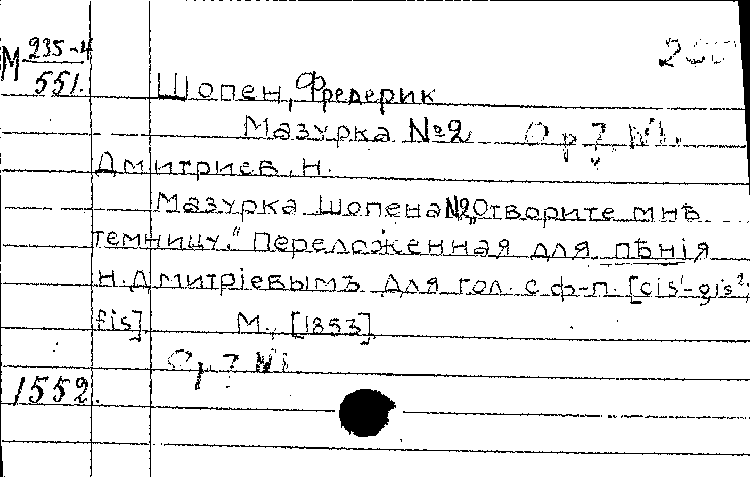 М 235-4
551.
Шопен, Фредерик
Мазурка №2 Op 7, №1.
Дмитриев, Н.
Мазурка Шопена №2 „Отворите мнѣ
темницу." Переложенная для пѣнiя
Н. Дмитрiевымъ для гол. с ф-п. [cis¹-gis²;
fis] М., [1853]
Op. 7 №1.
1552.